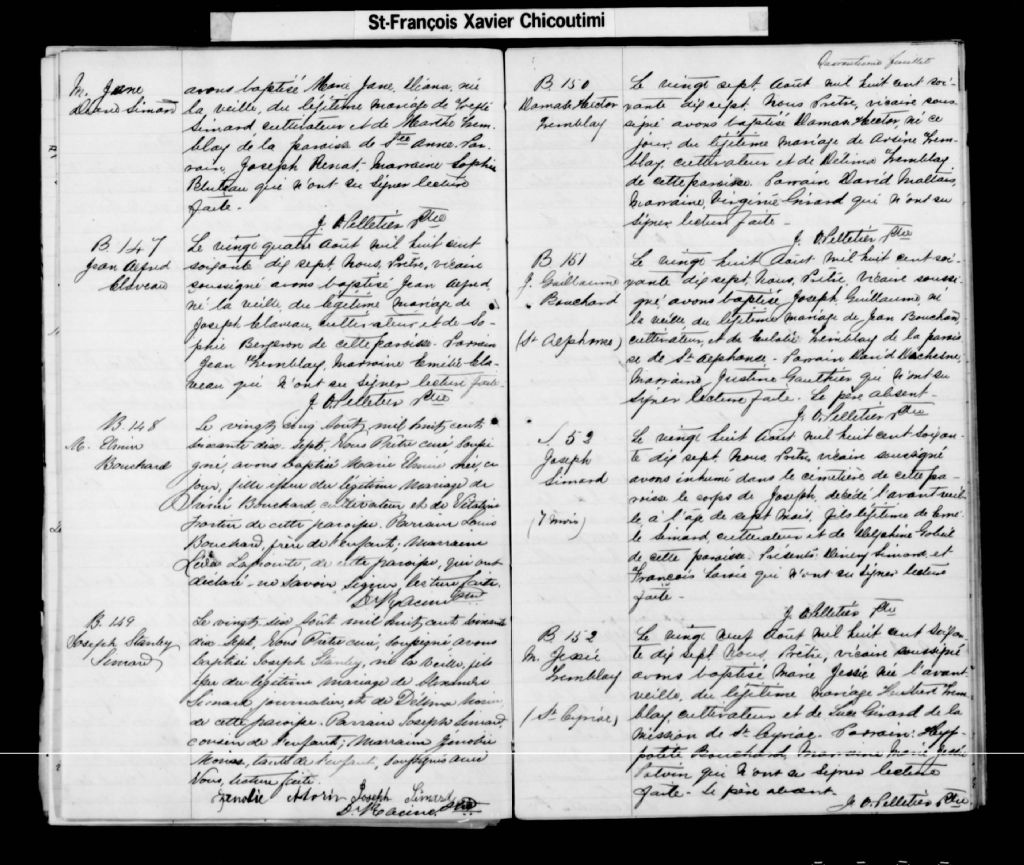 St-François Xavier Chicoutimi
M. Jane
Simard
avons baptisé Marie Jane, née
la veille, du légitime mariage de
Simard cultivateur et de Marthe Trem-
blay de la paroisse de Ste Anne. Par-
rain, Joseph Marraine Sophie
Bluteau qui n'ont su signer lecture
faite.
J. O. Pelletier Ptre
B 147
Jean Alfred
Claveau
Le vingt quatre Août mil huit cent
soixante dix sept, Nous, Prêtre, vicaire
soussigné avons baptisé Jean Alfred,
né la veille, du légitime mariage de
Joseph Claveau, cultivateur, et de So-
phie Bergeron de cette paroisse. Parrain
Jean Tremblay, Marraine Emélie Cla-
veau qui n'ont su signer lecture faite.
J. O. Pelletier Ptre
B. 148
M. Elmire
Bouchard
Le vingt cinq Août, mil huit cent
soixante dix Sept, Nous Prêtre curé soussi-
gné, avons baptisé Marie Elmire née, ce
jour, fille issue du légitime mariage de
Bouchard cultivateur et de
Fortin de cette paroisse. Parrain Louis
Bouchard, frère de l'enfant; Marraine
Léda Lapointe, de cette paroisse, qui ont
déclaré ne savoir signer lecture faite.
D. Racine Ptre
B. 149
Joseph Stanley
Simard
Le vingt six Août mil huit cent soixante
dix Sept, Nous Prêtre curé, soussigné avons
baptisé Joseph Stanley, né la veille, fils
issu du légitime mariage de Alexandre
Simard, journalier, et de Morin
de cette paroisse. Parrain Joseph Simard
cousin de l'enfant; Marraine Zénobie
Morin, tante de l'enfant, soussignés avec
Nous, lecture faite.
Zenobie Morin Joseph Simard
D. Racine Ptre
Quarantième feuillet
B 150
Damase Hector
Tremblay
Le vingt sept Août mil huit cent soi-
xante dix sept, Nous Prêtre, vicaire sous-
signé avons baptisé Damase Hector né ce
jour, du légitime mariage de Arsène Trem-
blay, cultivateur et de Delima Tremblay
de cette paroisse. Parrain David Maltais,
Marraine, Virginie Girard qui n'ont su
signer lecture faite.
J. O. Pelletier Ptre
B 151
J. Guillaume
Bouchard
(St Alphonse)
Le vingt huit Août mil huit cent soi-
xante dix sept, Nous, Prêtre, vicaire soussi-
gné avons baptisé Joseph Guillaume, né
la veille du légitime mariage de Jean Bouchard,
cultivateur, et de Eulalie Tremblay de la parois-
se de St Alphonse. Parrain David Duchesne,
Marraine Justine Gauthier qui n'ont su
signer lecture faite. Le père absent.
J. O. Pelletier Ptre
S. 52
Joseph
Simard
(7 mois)
Le vingt huit Août mil huit cent soixan-
te dix sept, Nous, Prêtre, vicaire soussigné
avons inhumé dans le cimetière de cette pa-
roisse le corps de Joseph, décédé l'avant veil-
le, à l'âge de sept mois, fils légitime de
Simard, cultivateur, et de Delphine Gobeil
de cette paroisse. Présents Simard, et
François Savoie qui n'ont su signer lecture
faite.
J. O. Pelletier Ptre
B 152
M. Jessié
Tremblay
(St Cyriac)
Le vingt neuf Août mil huit cent soixan-
te dix sept Nous, Prêtre, vicaire soussigné
avons baptisé Marie Jessié née l'avant
veille, du légitime mariage Hubert Trem-
blay, cultivateur et de Luce Girard de la
mission de St Cyriac. Parrain Hyp-
polite Bouchard, Marraine Marie
Potvin qui n'ont su signer lecture
faite. Le père absent.
J. O. Pelletier Ptre